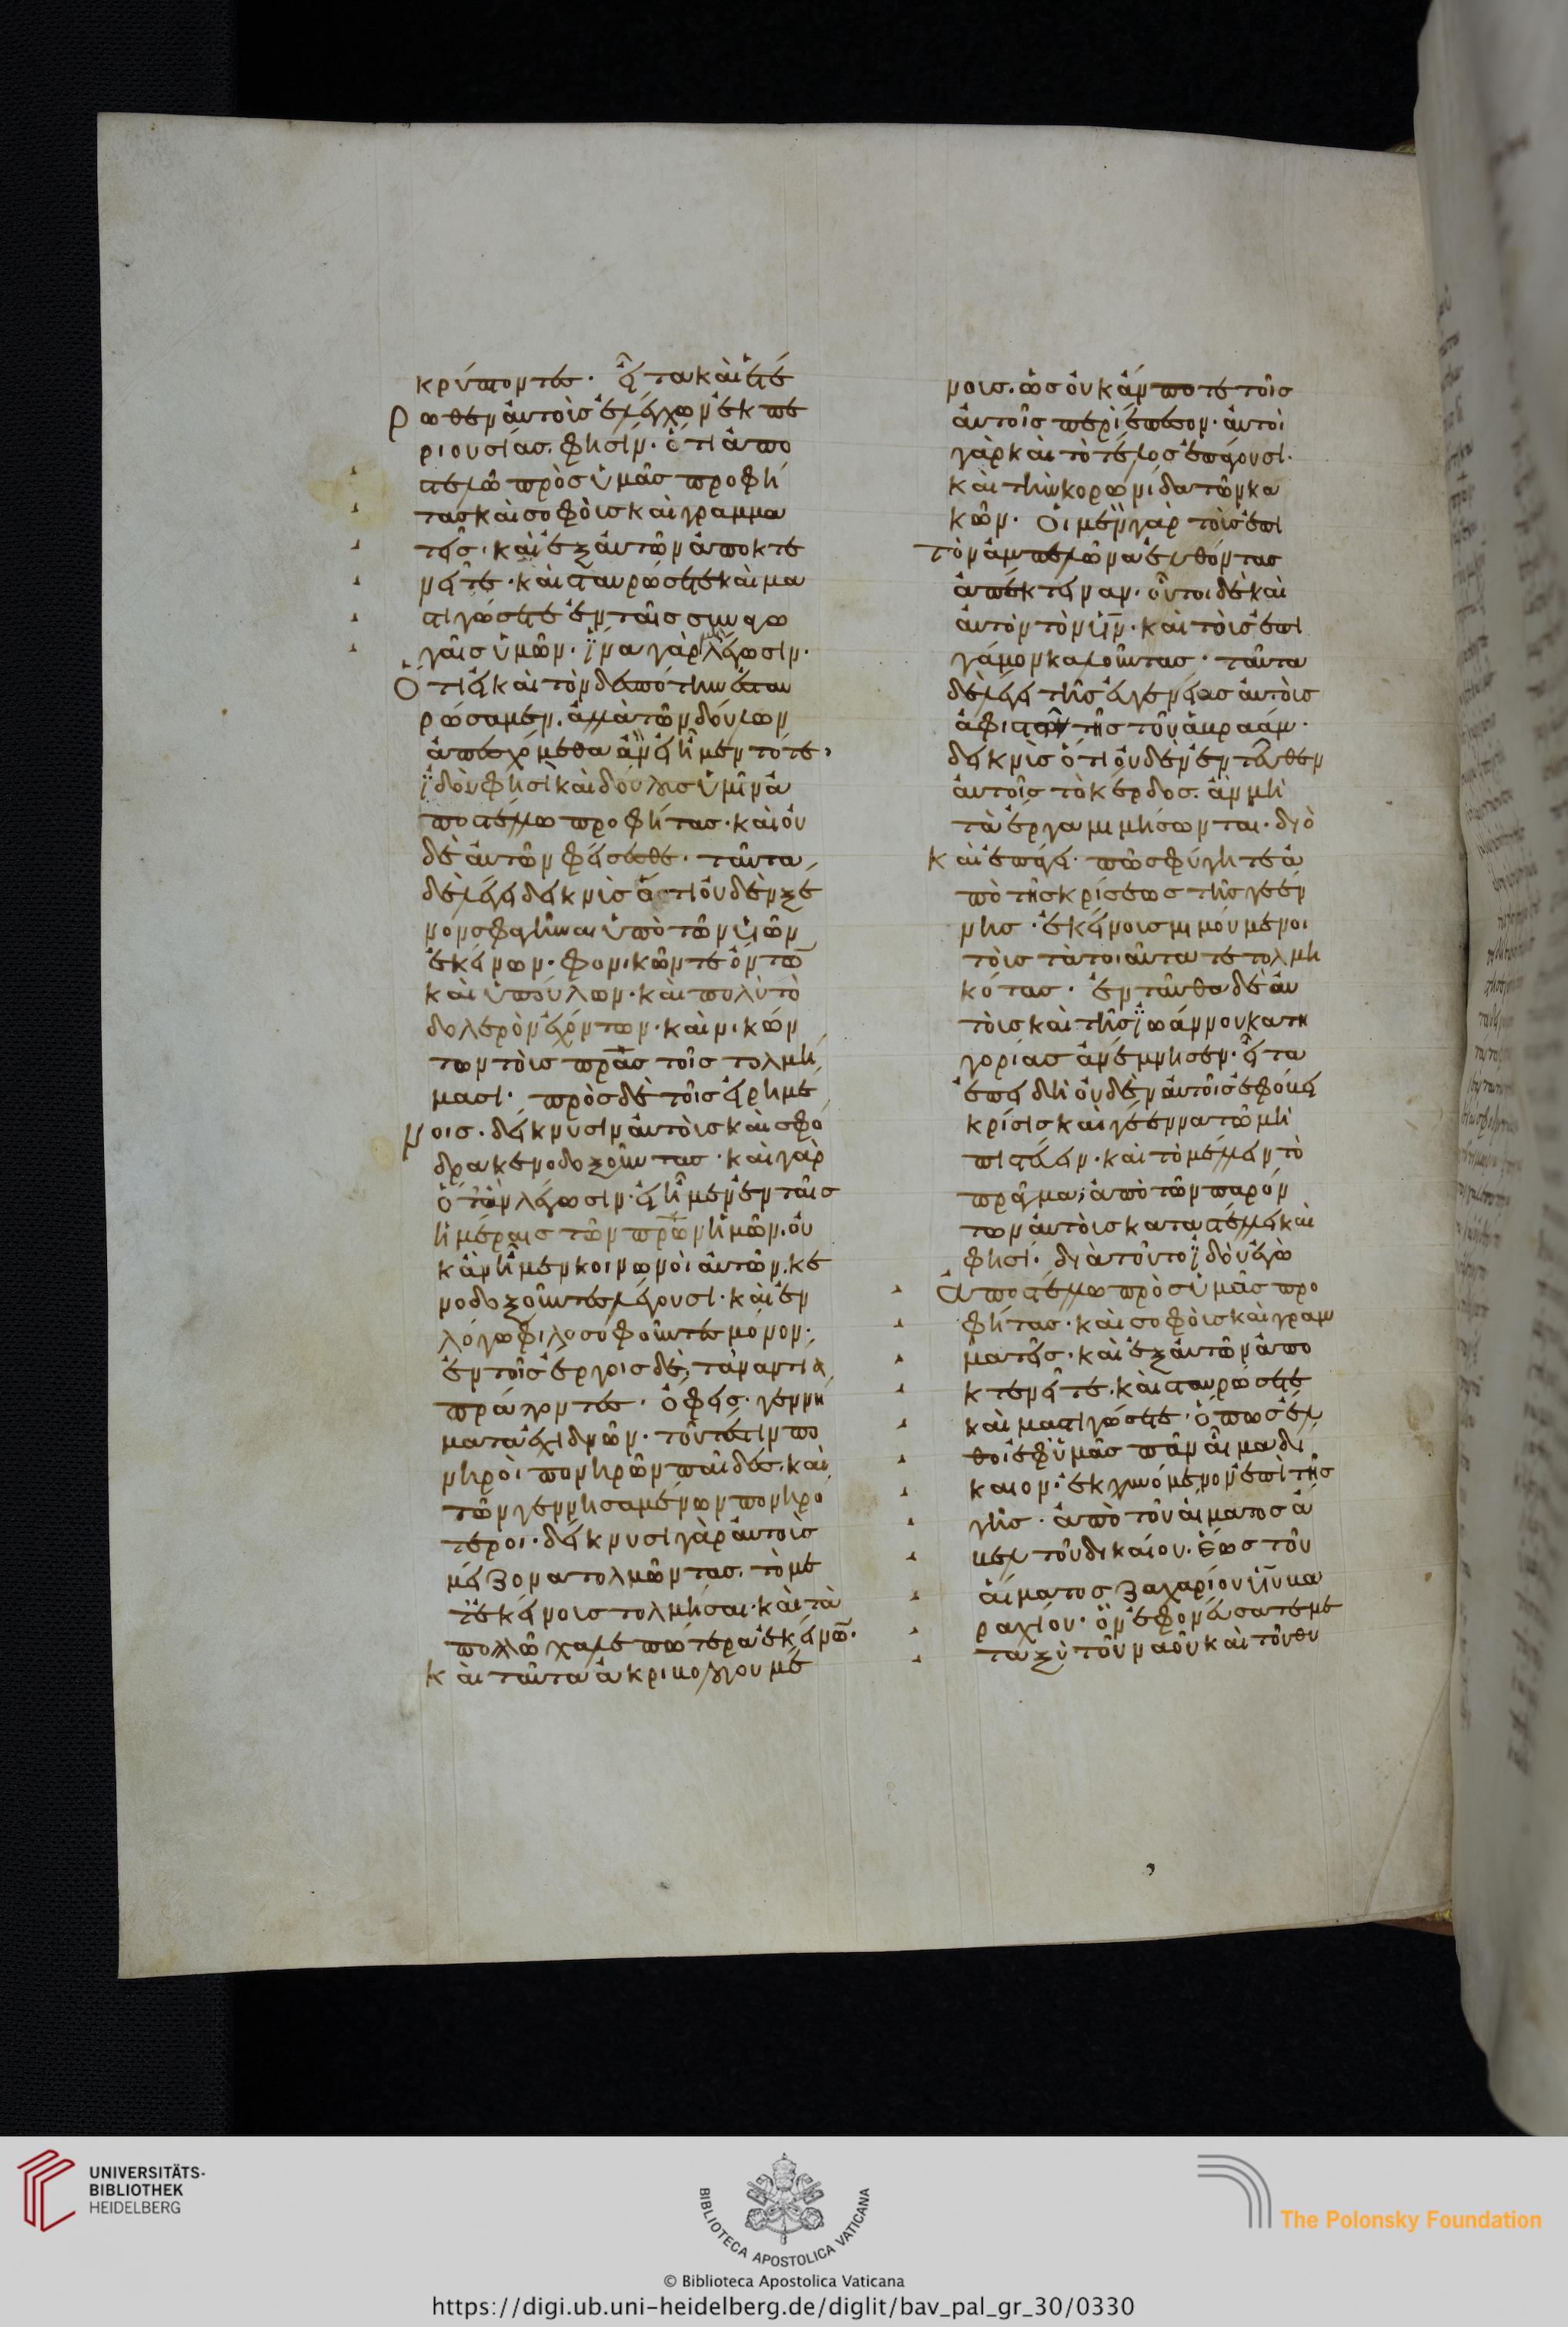 κρύπτοντες. εἶτα καὶ ἑτέ
ρωθεν αὐτοὺς ἐλέγχων ἐκ πε
ριουσίας. φησίν. ὅτι ἀπο
στελῶ πρὸς ὑμᾶς προφή
τας καὶ σοφοὺς καὶ γραμμα
τεῖς. καὶ ἐξ αὐτῶν ἀποκτε
νεῖτε. καὶ σταυρώσετε καὶ μα
στιγώσετε ἐν ταῖς συναγω
γαῖς ὑμῶν. ἵνα γὰρ μὴ λέγωσιν.
Ὅτι εἰ καὶ τὸν δεσπότην ἐσταυ
ρώσαμεν. ἀλλὰ τῶν δούλων
ἀπεσχόμεθα ἂν εἰ ἦμεν τότε.
ἰδοὺ φησὶ καὶ δούλους ὑμῖν ἀ
ποστέλλω προφήτας. καὶ οὐ
δὲ αὐτῶν φείσεσθε. ταῦτα
δὲ λέγει δεικνὺς ὅτι οὐδὲν ξέ
νον σφαγῆναι ὑπὸ τῶν υἱῶν
ἐκείνων. φονικῶν τε ὄντων
καὶ ὑπούλων. καὶ πολὺ τὸ
δολερὸν ἐχόντων. καὶ νικών
των τοὺς πρας τοῖς τολμή
μασι. πρὸς δὲ τοῖς εἰρημέ
νοις. δείκνυσιν αὐτοὺς καὶ σφό
δρα κενοδοξοῦντας. καὶ γὰρ
ὅταν λέγωσιν. εἰ ἦμεν ἐν ταῖς
ἡμέραις τῶν πρων ἡμῶν. οὐ
κ ἂν ἦμεν κοινωνοὶ αὐτῶν. κε
νοδοξοῦντες λέγουσι. καὶ ἐν
λόγω φιλοσοφοῦντες μόνον.
ἐν τοῖς ἔργοις δὲ, τἀναντία
πράττοντες. ὄφεις. γεννή
ματα ἐχιδνῶν. τουτέστιν πο
νηροὶ πονηρῶν παῖδες. καὶ
τῶν γεννησαμένων πονηρό
τεροι. δείκνυσι γὰρ αὐτοὺς
μείζονα τολμῶντας. τὸ με
τ' ἐκείνους τολμῆσαι. καὶ τὰ
πολλῶ χαλεπώτερα ἐκείνων.
Καὶ ταῦτα ἀκριβολογουμέ
νοις. ὡς οὐκ ἄν ποτε τοῖς
αὐτοῖς περιέπεσον. αὐτοὶ
γὰρ καὶ τὸ τέλος ἐπάγουσι.
καὶ τὴν κορωνίδα τῶν κα
κῶν. Οἱ μὲν γὰρ τοὺς ἐπὶ
τὸν ἀμπελῶνα ἐλθόντας
ἀπέκτειναν. οὗτοι δὲ καὶ
αὐτὸν τὸν υἱν. καὶ τοὺς ἐπὶ
γάμον καλοῦντας. ταῦτα
δὲ λέγει τῆς εὐγενείας αὐτοὺς
ἀφιστῶν τῆς τοῦ ἀβραάμ.
δεικνὺς ὅτι οὐδὲν ἐντεῦθεν
αὐτοῖς τὸ κέρδος. ἂν μὴ
τὰ ἔργα μιμήσωνται. διὸ
καὶ ἐπάγει. πῶς φύγητε ἀ
πὸ τῆς κρίσεως τῆς γεέν
νης. ἐκείνους μιμούμενοι
τοὺς τὰ τοιαῦτα τετολμη
κότας. ἐνταῦθα δὲ αὐ
τοὺς καὶ τῆς ἰωάννου κατη
γορίας ἀνέμνησεν. εἶτα
ἐπειδὴ οὐδὲν αὐτοῖς ἐφόβει
κρίσις καὶ γέεννα τῶ μὴ
πιστεύειν. καὶ τὸ μέλλειν τὸ
πρᾶγμα; ἀπὸ τῶν παρόν
των αὐτοὺς καταστέλλει καὶ
φησί. διὰ τοῦτο ἰδοὺ ἐγὼ
ἀποστέλλω πρὸς ὑμᾶς προ
φήτας. καὶ σοφοὺς καὶ γραμ
ματεῖς. καὶ ἐξ αὐτῶν ἀπο
κτενεῖτε. καὶ σταυρώσετε
καὶ μαστιγώσετε. ὅπως ἔλ
θοι ἐφ' ὑμᾶς πᾶν αἷμα δί
καιον. ἐκχυνόμενον ἐπὶ τῆς
γῆς. ἀπὸ τοῦ αἵματος ἄ
βελ τοῦ δικαίου. ἕως τοῦ
αἵματος ζαχαρίου υἱοῦ βα
ραχίου. ὃν ἐφονεύσατε με
ταξὺ τοῦ ναοῦ καὶ τοῦ θυ
UNIVERSITÄTS-
BIBLIOTHEK
HEIDELBERG
BIBLIOTECA APOSTOLICA VATICANA
The Polonsky Foundation
© Biblioteca Apostolica Vaticana
https://digi.ub.uni-heidelberg.de/diglit/bav_pal_gr_30/0330